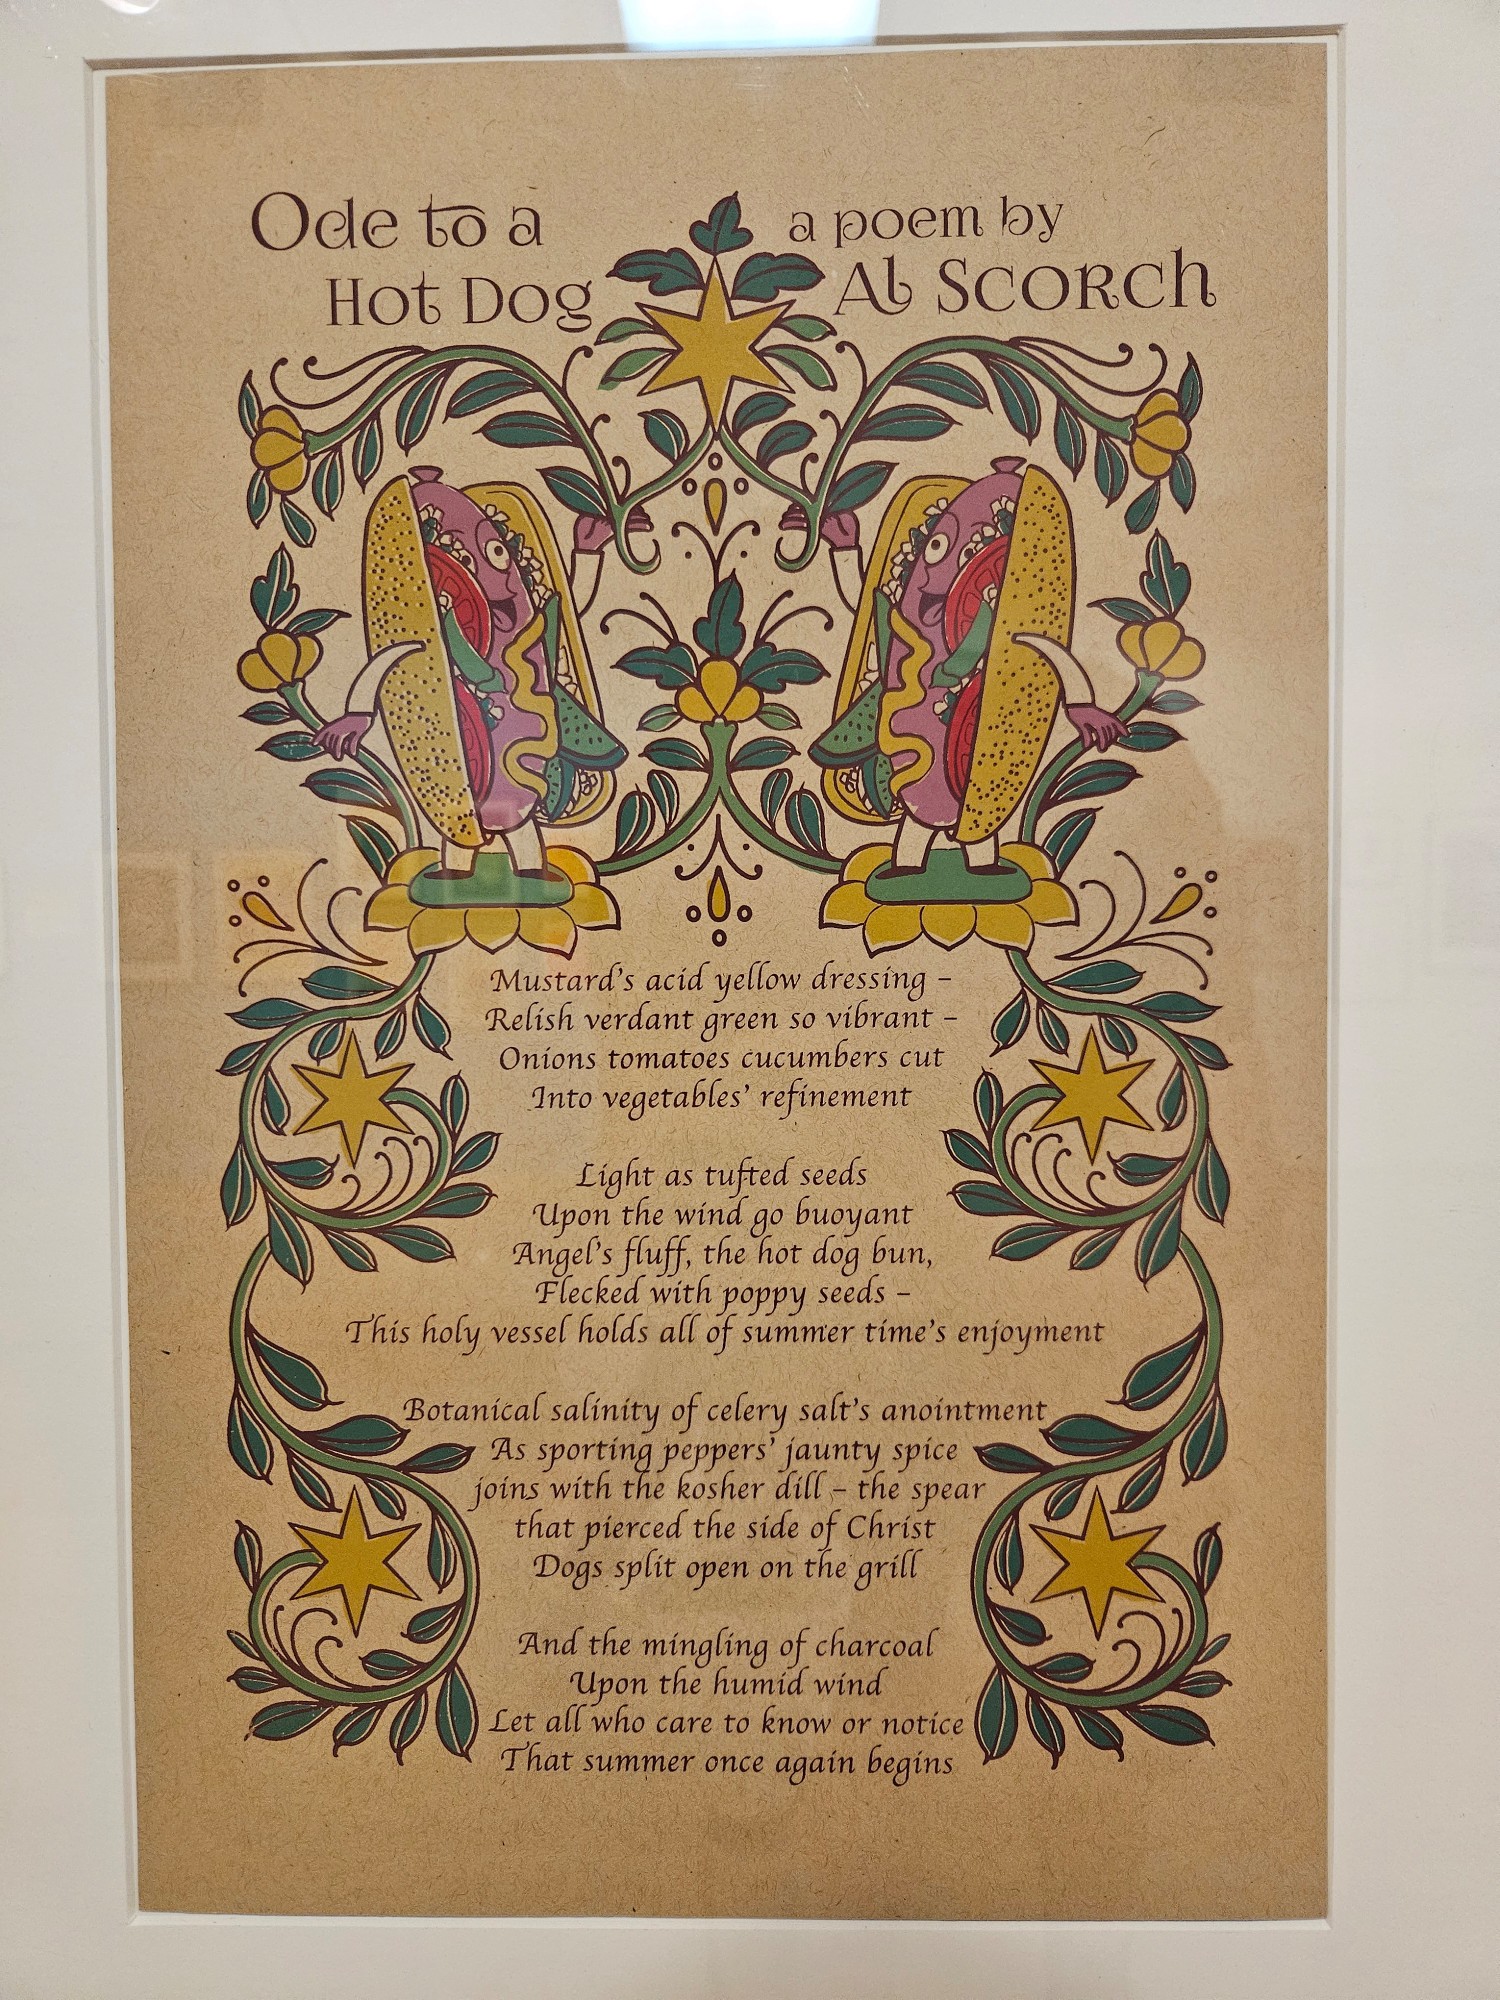 Ode to a
Hot Dog
a poem by
Al Scorch
Mustard's acid yellow dressing –
Relish verdant green so vibrant –
Onions tomatoes cucumbers cut
Into vegetables' refinement
Light as tufted seeds
Upon the wind go buoyant
Angel's fluff, the hot dog bun,
Flecked with poppy seeds –
This holy vessel holds all of summer time's enjoyment
Botanical salinity of celery salt's anointment
As sporting peppers' jaunty spice
joins with the kosher dill – the spear
that pierced the side of Christ
Dogs split open on the grill
And the mingling of charcoal
Upon the humid wind
Let all who care to know or notice
That summer once again begins